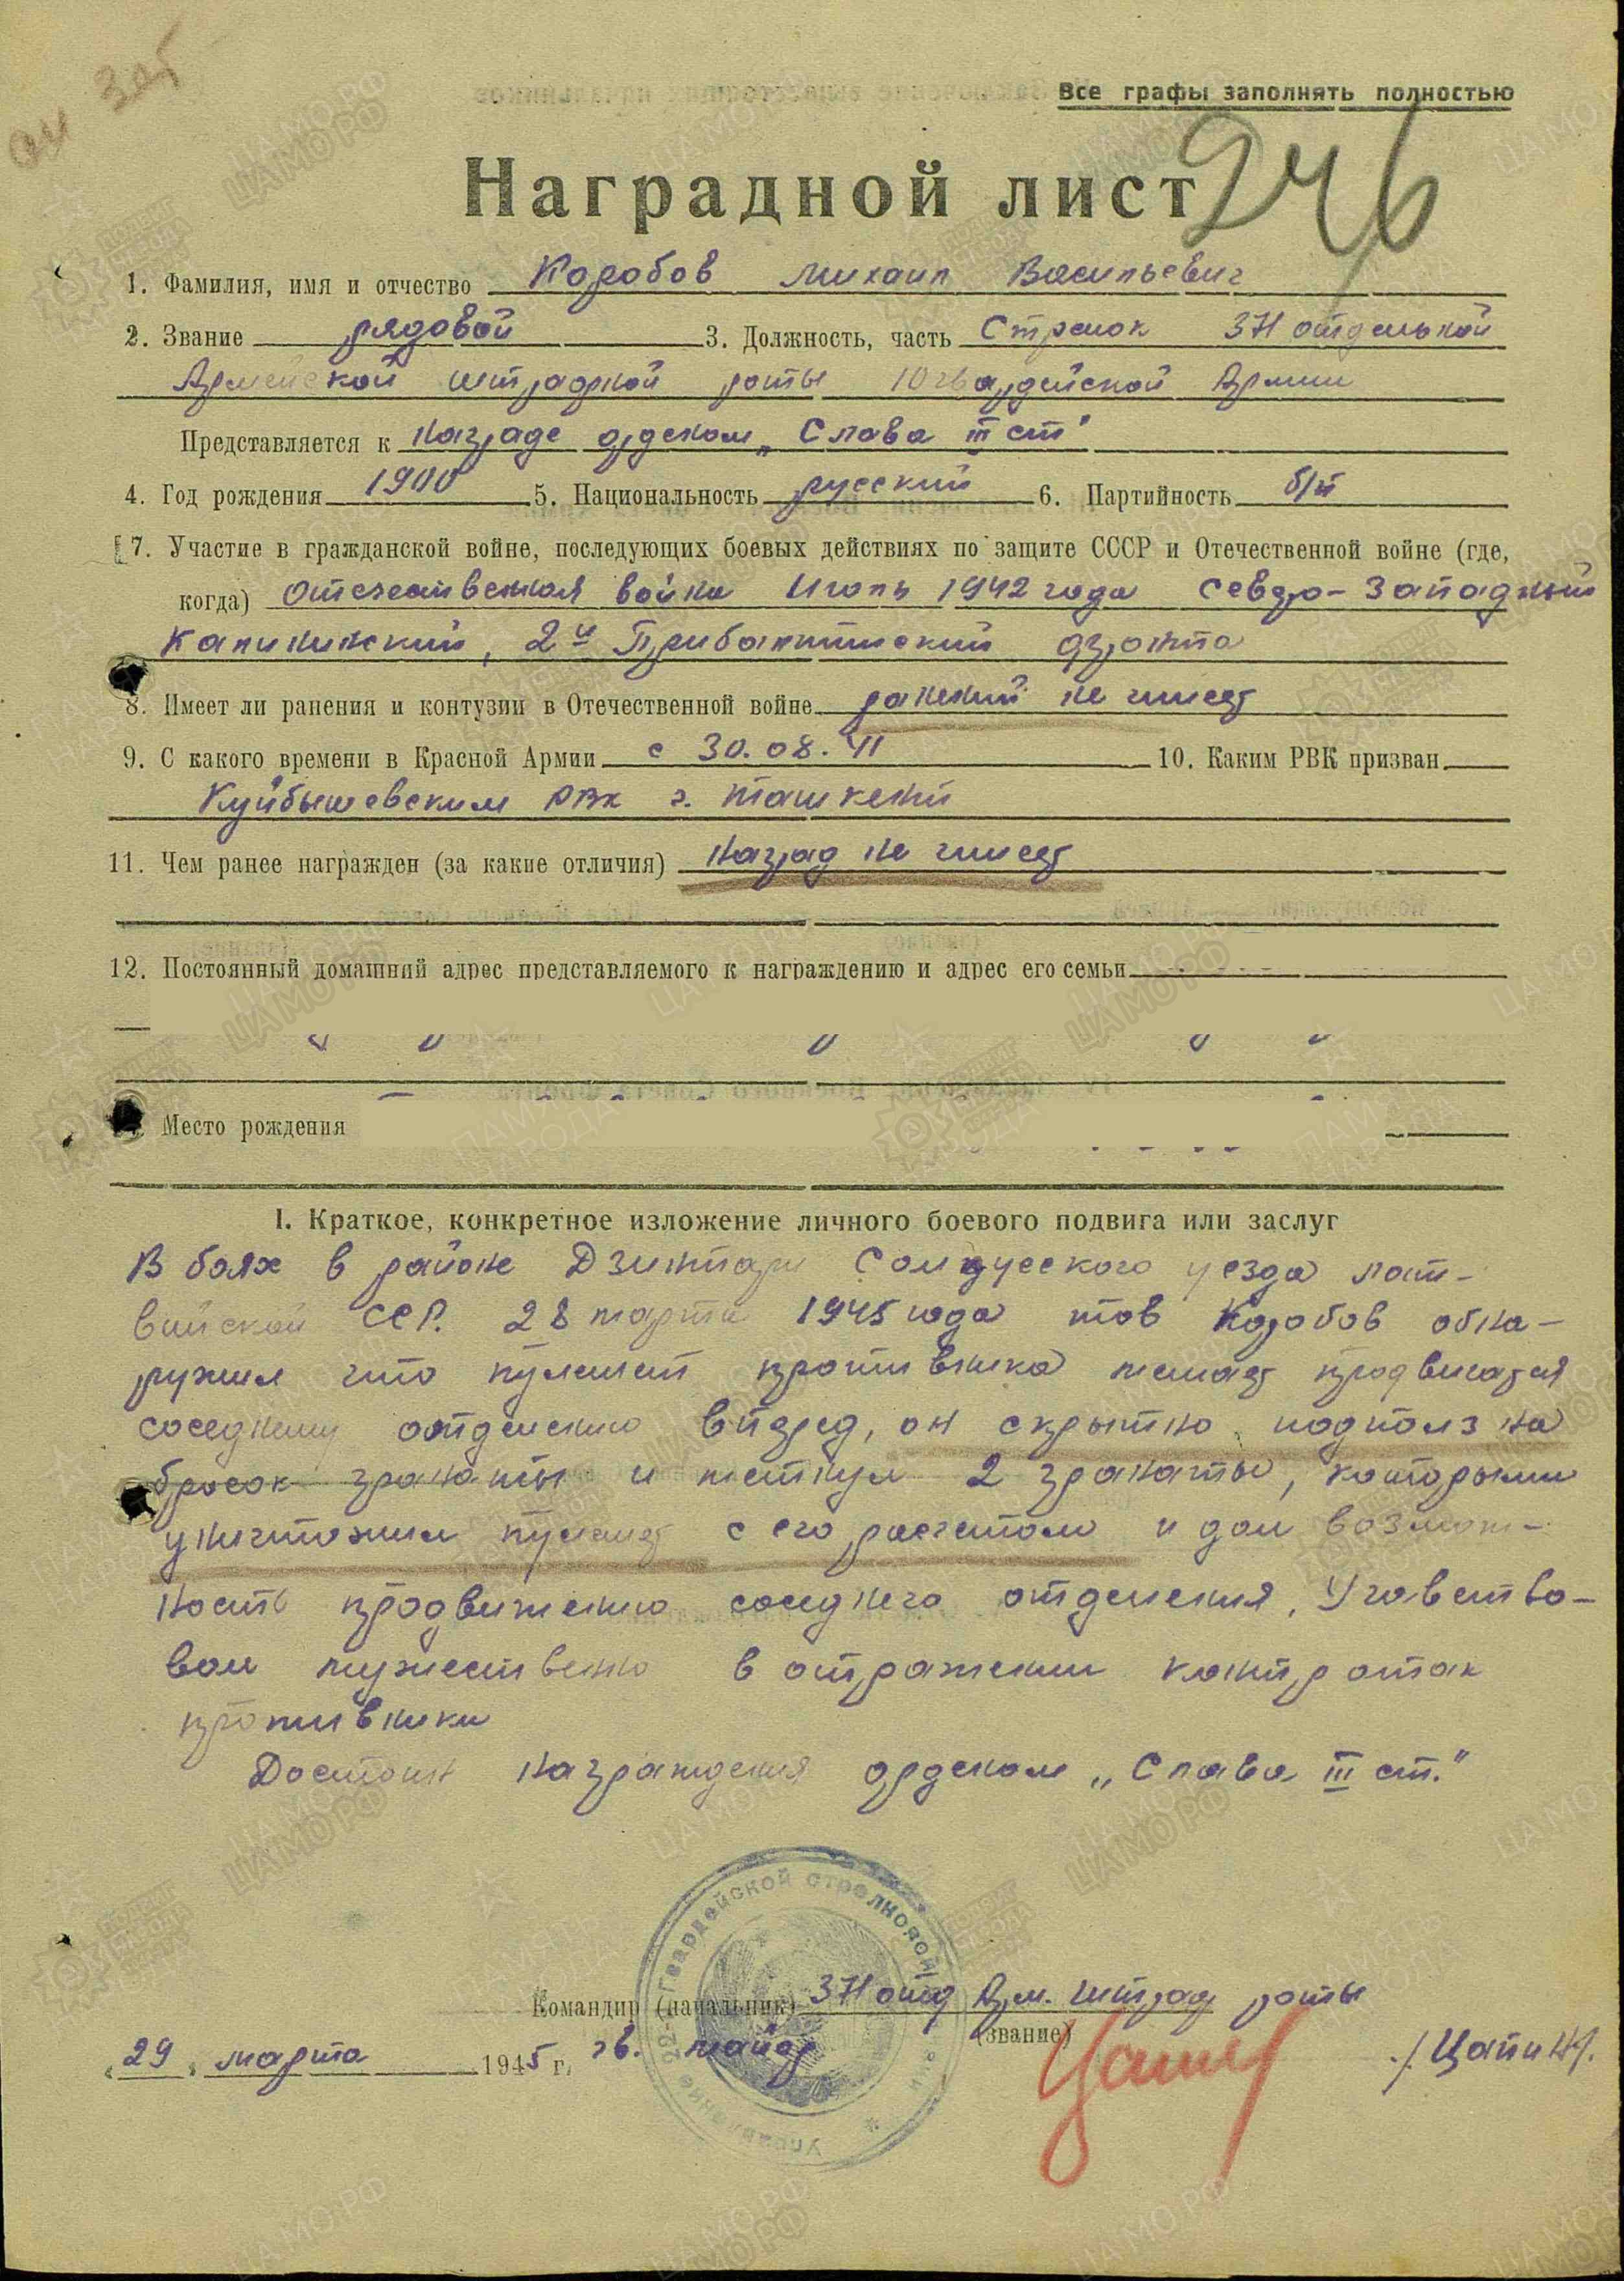 Все графы заполнять полностью
Наградной лист
246
1. Фамилия, имя и отчество Коробов Михаил Васильевич
2. Звание рядовой 3. Должность, часть Стрелок 371 отдельной
Армейской штрафной роты 10 гвардейской Армии
Представляется к награде орденом „Слава III ст"
4. Год рождения 1900 5. Национальность русский 6. Партийность б/п
7. Участие в гражданской войне, последующих боевых действиях по защите СССР и Отечественной войне (где,
когда) Отечественная война Июль 1942 года Северо-Западный
Калининский, 2й Прибалтийский фронта
8. Имеет ли ранения и контузии в Отечественной войне ранений не имеет
9. С какого времени в Красной Армии с 30.08.41 10. Каким РВК призван
Куйбышевским РВК г. Ташкент
11. Чем ранее награжден (за какие отличия) наград не имеет
12. Постоянный домашний адрес представляемого к награждению и адрес его семьи
Место рождения
I. Краткое, конкретное изложение личного боевого подвига или заслуг
В боях в районе Дзинтари уезда Лат-
вийской ССР. 28 марта 1945 года тов Коробов обна-
ружил что пулемет противника мешает продвигатся
соседнему отделению вперед, он скрытно подполз на
бросок гранаты и метнул 2 гранаты, которыми
уничтожил пулемет с его расчетом и дал возмож-
ность продвижению соседнего отделения. Учавство-
вал мужественно в отражении контратак
противника
Достоин награждения орденом „Слава III ст."
Командир (начальник) 371 отд Арм. штраф роты
(звание)
„29" марта 1945 г. гв. майор /Цапин/.
Управление 22-й Гвардейской стрелковой